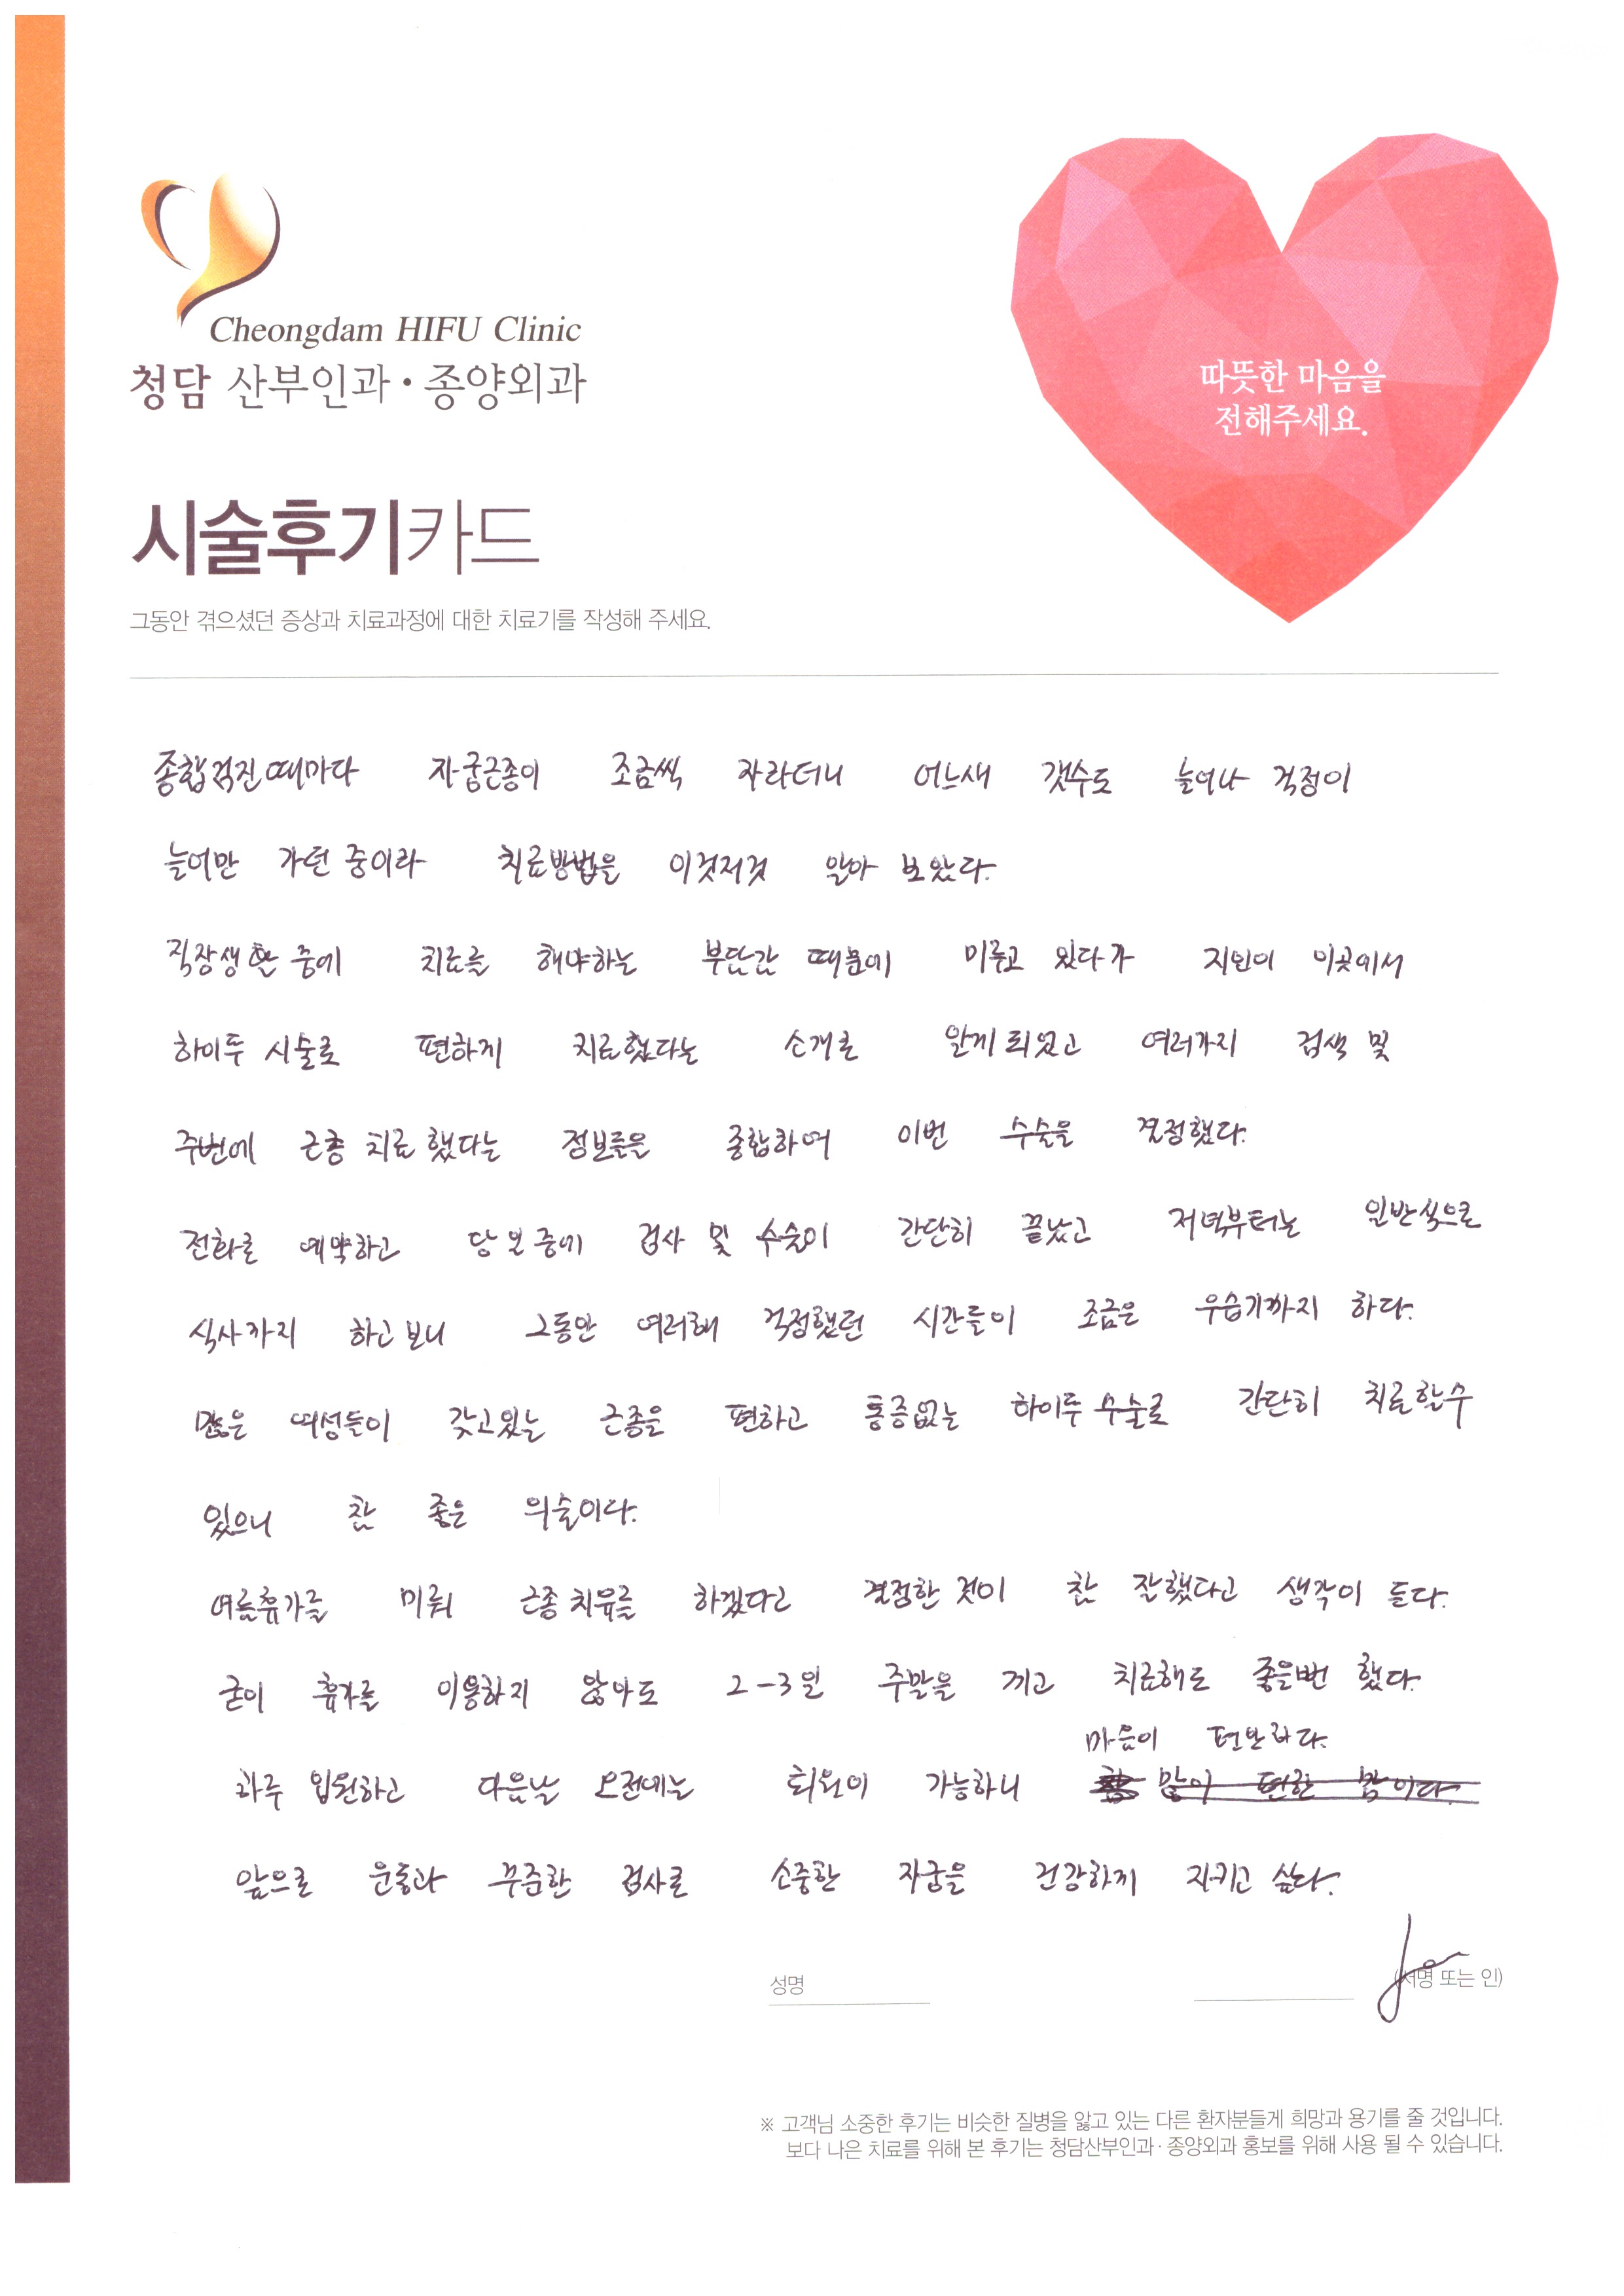 Cheongdam HIFU Clinic
청담 산부인과·종양외과
따뜻한 마음을
전해주세요.
시술후기카드
그동안 겪으셨던 증상과 치료과정에 대한 치료기를 작성해 주세요.
종합검진때마다 자궁근종이 조금씩 자라더니 어느새 갯수도 늘어나 걱정이
늘어만 가던 중이라 치료방법을 이것저것 알아 보았다.
직장생활 중에 치료를 해야하는 부담감 때문에 미루고 있다가 지인이 이곳에서
하이푸 시술로 편하게 치료했다는 소개로 알게 되었고 여러가지 검색 및
주변에 근종 치료했다는 정보들을 종합하여 이번 수술을 결정했다.
전화로 예약하고 당일 중에 검사 및 수술이 간단히 끝났고 저녁부터는 일반식으로
식사까지 하고 보니 그동안 여러해 걱정했던 시간들이 조금은 우습기까지 하다.
많은 여성들이 갖고있는 근종을 편하고 통증없는 하이푸 수술로 간단히 치료할수
있으니 참 좋은 의술이다.
여름휴가를 미뤄 근종 치유를 하겠다고 결정한 것이 참 잘했다고 생각이 든다.
굳이 휴가를 이용하지 않아도 2-3일 주말을 끼고 치료해도 좋을뻔 했다.
마음이 편안하다.
하루 입원하고 다음날 오전에는 퇴원이 가능하니 많이 편한 맘이다.
앞으로 운동과 꾸준한 검사로 소중한 자궁을 건강하게 지키고 싶다.
성명 (서명 또는 인)
※ 고객님 소중한 후기는 비슷한 질병을 앓고 있는 다른 환자분들게 희망과 용기를 줄 것입니다.
보다 나은 치료를 위해 본 후기는 청담산부인과·종양외과 홍보를 위해 사용 될 수 있습니다.